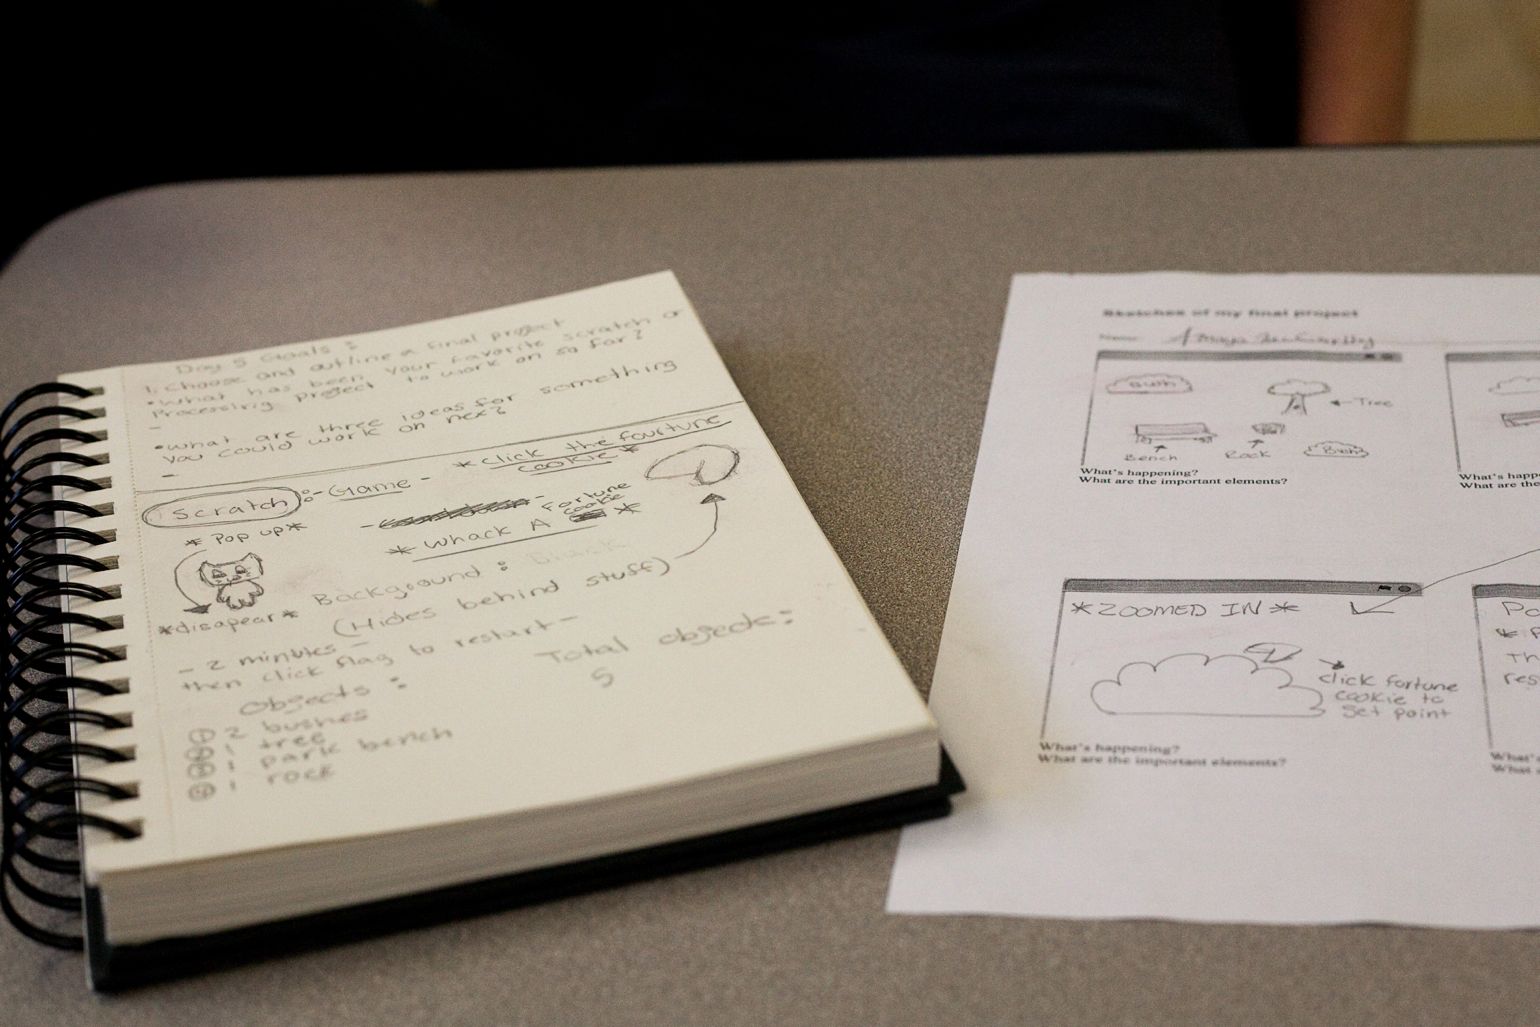 Day 5 Goals :
1. Choose and outline a final project
• What has been your favorite scratch or
Processing project to work on so far?
-
• what are three ideas for something
you could work on nex?
-
* Click the fourtune
cookie *
Scratch :- Game -
- Fortune
cookie
* Whack A *
* Pop up *
Background :
(Hides behind stuff)
* disapear *
- 2 minutes -
then click flag to restart -
Total objects:
5
Objects :
2 bushes
1 tree
1 park bench
1 rock
Sketches of my final project
Name:
Bush
Tree
Bench
Rock
Bush
What's happening?
What are the important elements?
What's happe
What are the
* ZOOMED IN *
click fortune
cookie to
Get point
What's happening?
What are the important elements?
Po
Th
res
What's
What a